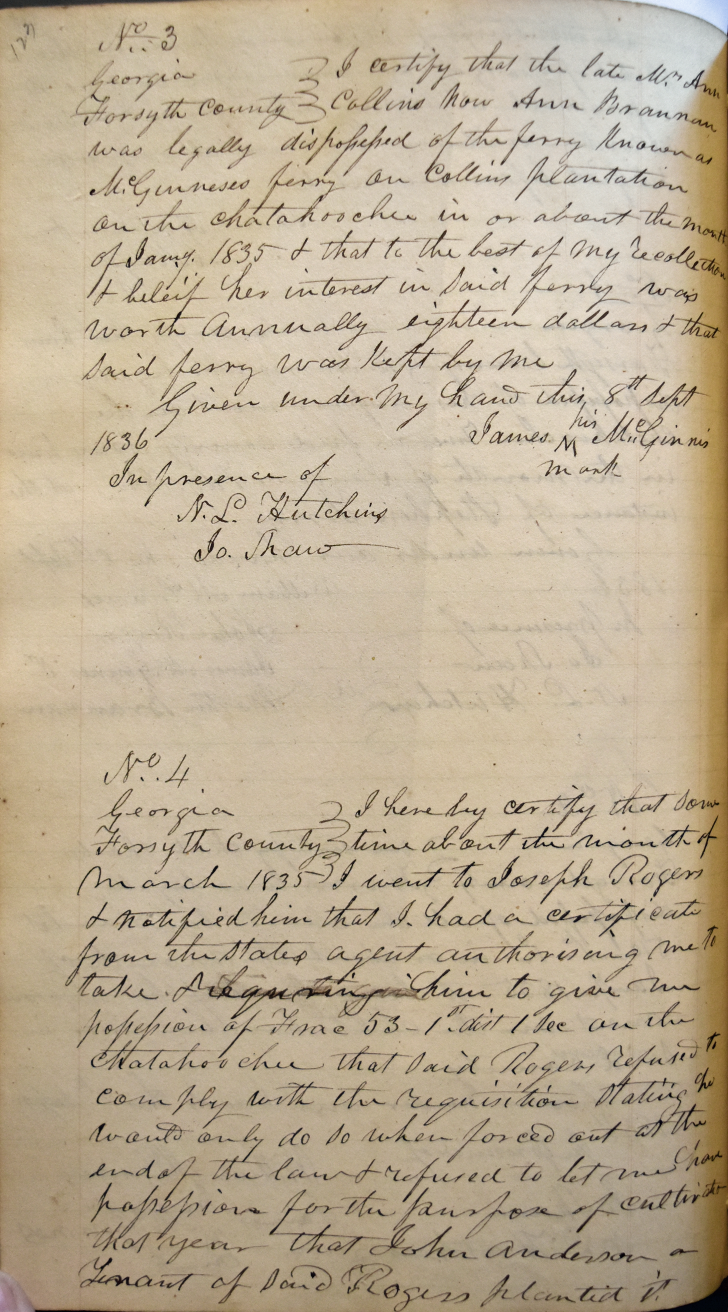 127
No. 3
Georgia I certify that the late Mrs Ann
Forsyth County Collins now Ann Brannan
was legally dispossessed of the ferry Known as
McGinneses ferry on Collins plantation
on the chatahoochee in or about the month
of Jany. 1835 & that to the best of my recollection
& beleif her interest in said ferry was
worth Annually eighteen dollars & that
said ferry was Kept by me
Given under my hand this 8th Sept
1836 James his McGinnis
mark
In presence of
N. L. Hutchins
Jo. Shaw
No. 4
Georgia I here by certify that some
Forsyth County time about the month of
March 1835 I went to Joseph Rogers
& notified him that I had a certificate
from the states agent authorising me to
take & requiring him to give me
possession of Frac 53 - 1st dist 1 Sec on the
Chatahoochee that said Rogers refused to
comply with the requisition stating he
would only do so when forced out at the
end of the law & refused to let me have
possession for the purpose of cultivate
that year that John Anderson a
Tenant of said Rogers planted it